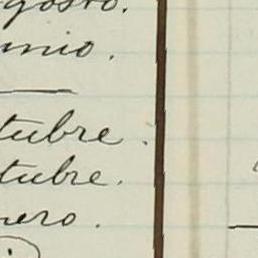 gosto.
unio.
tubre.
tubre.
nero.